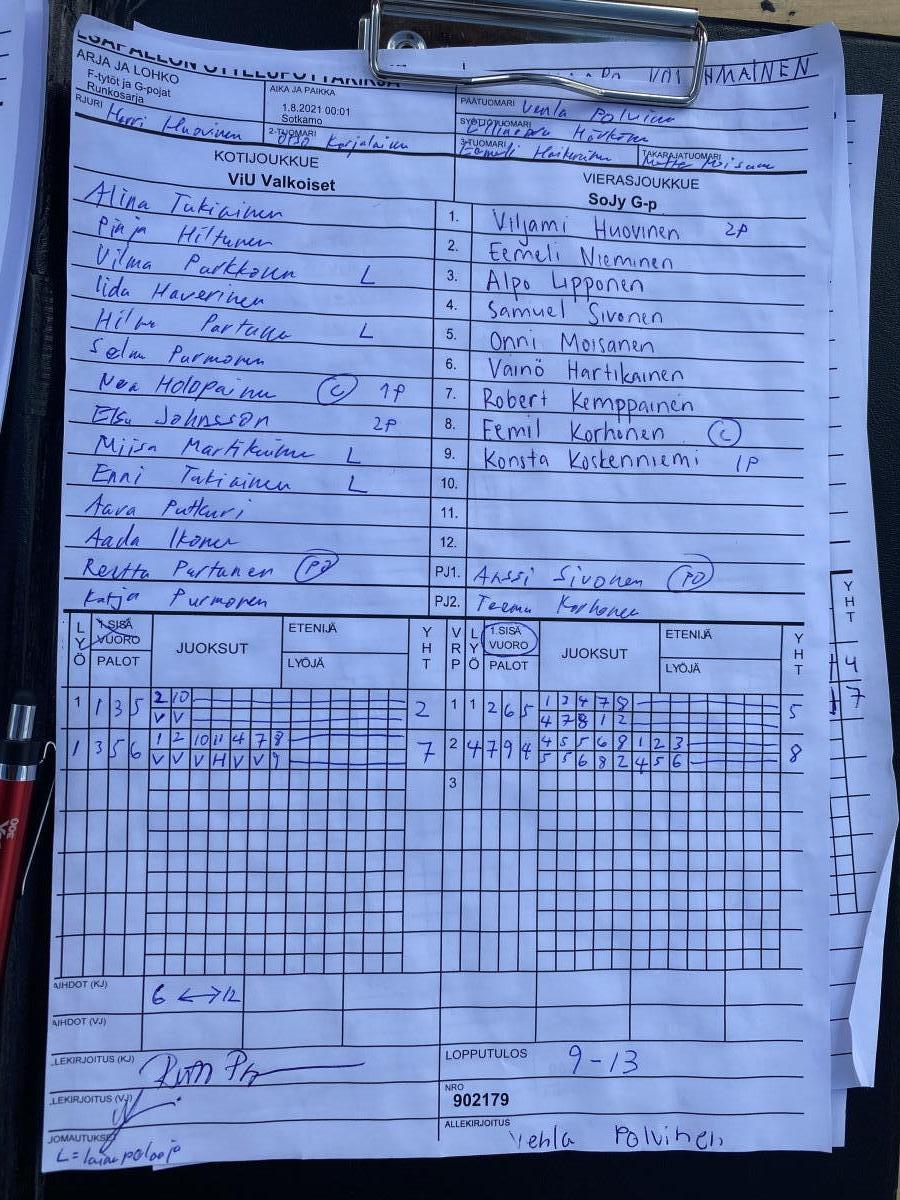 ARJA JA LOHKO
F-tytöt ja G-pojat
Runkosarja
AIKA JA PAIKKA
1.8.2021 00:01
Sotkamo
PÄÄTUOMARI Venla Polvinen
SYÖTTÖTUOMARI
RJURI Harri Huovinen
2-TUOMARI Karjalainen
3-TUOMARI Eemeli
TAKARAJATUOMARI
KOTIJOUKKUE
ViU Valkoiset
VIERASJOUKKUE
SoJy G-p
Alina Tukiainen 1. Viljami Huovinen 2P
Pinja Hiltunen 2. Eemeli Nieminen
Vilma Parkkonen L 3. Alpo Lipponen
Iida Haverinen 4. Samuel Sivonen
Hilma Partanen L 5. Onni Moisanen
Selma Purmonen 6. Väinö Hartikainen
Nea Holopainen C 1P 7. Robert Kemppainen
Elsa Johnsson 2P 8. Eemil Korhonen C
Miisa Martikainen L 9. Konsta Koskenniemi 1P
Enni Tukiainen L 10.
Aava Putkuri 11.
Aada Ikonen 12.
Reetta Partanen PJ1. Anssi Sivonen
Katja Purmonen PJ2. Teemu Korhonen
LYÖ 1.SISÄ VUORO PALOT JUOKSUT ETENIJÄ LYÖJÄ YHT VRP LYÖ 1.SISÄ VUORO PALOT JUOKSUT ETENIJÄ LYÖJÄ YHT
1 1 3 5 2 10 2 1 1 2 6 5 1 2 4 7 8 5
V V 4 7 8 1 2
1 3 5 6 1 2 10 11 4 7 8 7 2 4 7 9 4 4 5 5 6 8 1 2 3 8
V V V H V V 9 5 5 6 8 2 4 5 6
3
AIHDOT (KJ) 6 ↔ 12
AIHDOT (VJ)
LEKIRJOITUS (KJ)
LOPPUTULOS 9-13
LEKIRJOITUS (VJ)
NRO
902179
JOMAUTUKSET
ALLEKIRJOITUS Venla Polvinen
YHT
4
7